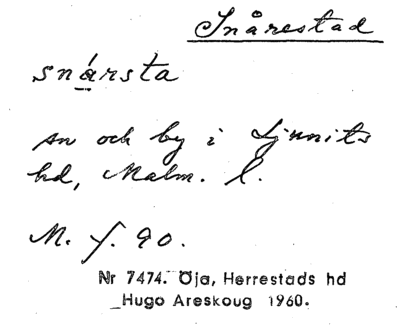 Snårestad
snársta
sn och by i Ljunits
hd, Malm. l.
M. f. 90.
Nr 7474. Öja, Herrestads hd
Hugo Areskoug 1960.